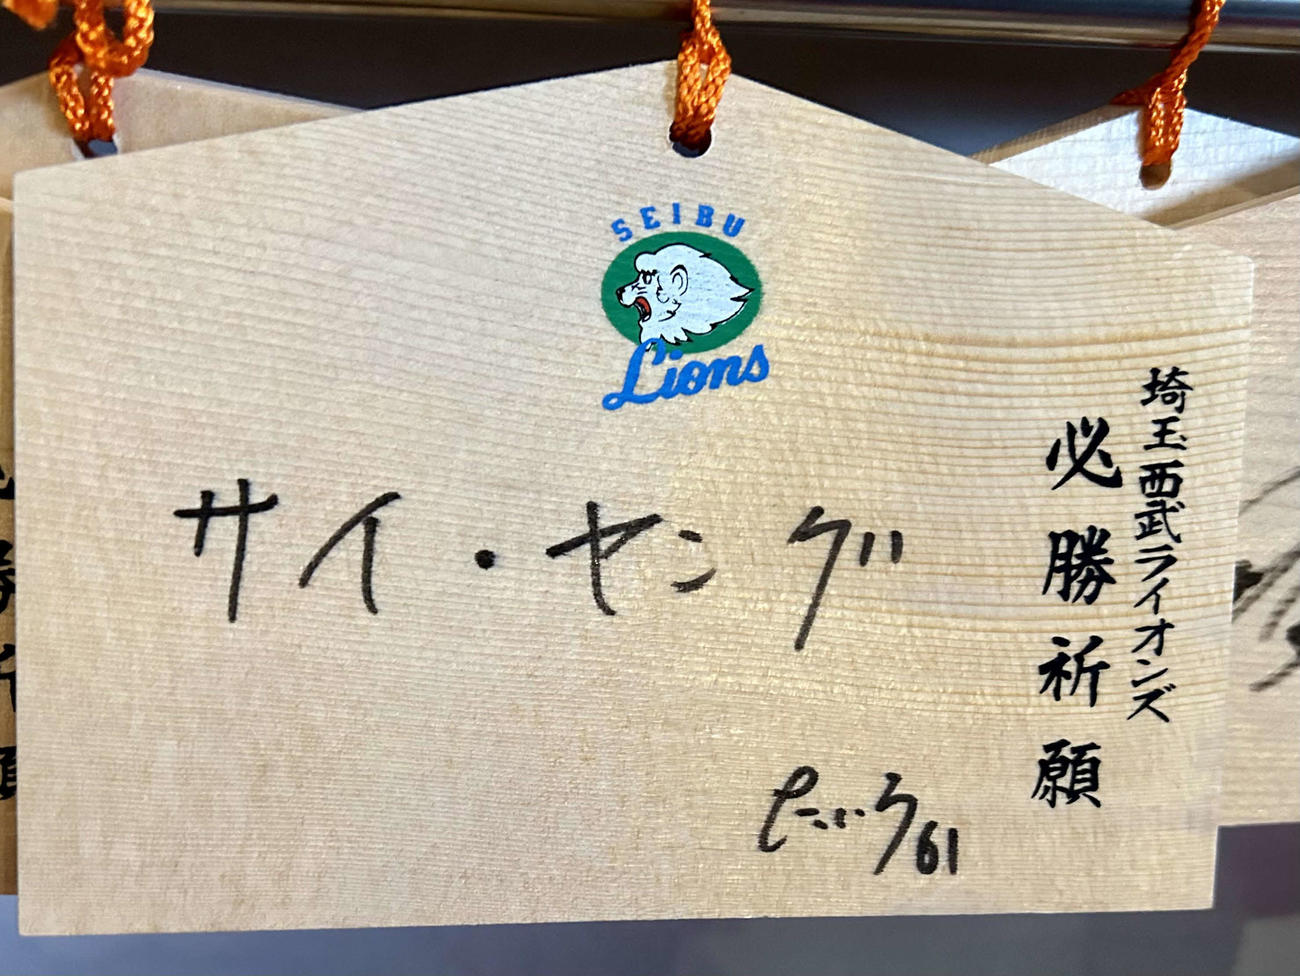 SEIBU
Lions
埼玉西武ライオンズ
必勝祈願
サイ・ヤング
61